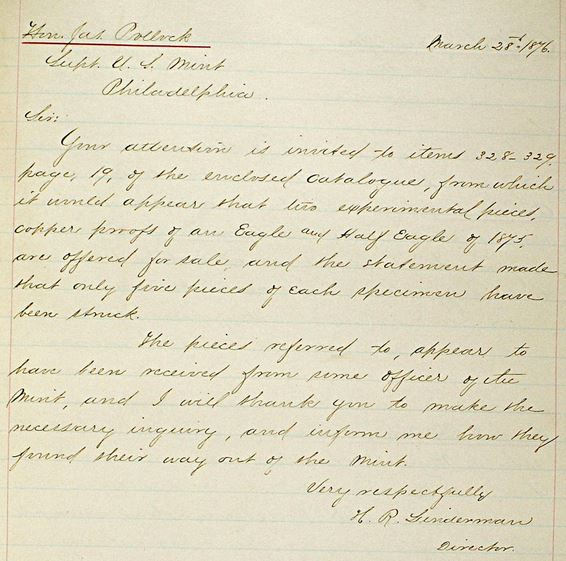 Hon. Jas. Pollock
March 28th 1876.
Supt. U. S. Mint
Philadelphia.
Sir:
Your attention is invited to items 328-329,
page, 19, of the enclosed catalogue, from which
it would appear that two experimental pieces,
copper proofs of an Eagle and Half Eagle of 1875,
are offered for sale, and the statement made
that only five pieces of each specimen have
been struck.
The pieces referred to, appear to
have been received from some officer of the
Mint, and I will thank you to make the
necessary inquiry, and inform me how they
found their way out of the Mint.
Very respectfully
H. R. Linderman
Director.